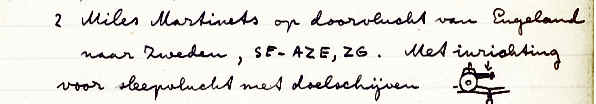 2 Miles Martinets op doorvlucht van Engeland
naar Zweden, SE-AZE, ZG. Met inrichting
voor sleepvlucht met doelschijven